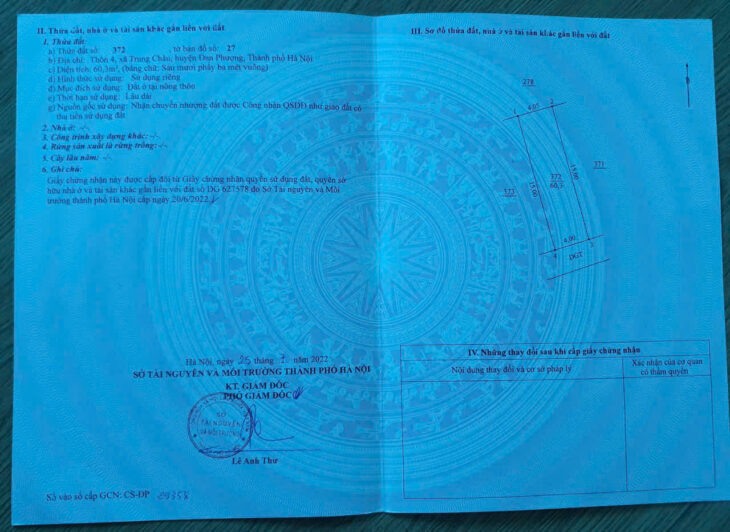 II. Thửa đất, nhà ở và tài sản khác gắn liền với đất
1. Thửa đất
a) Thửa đất số: 372 , tờ bản đồ số: 27
b) Địa chỉ: Thôn 4, xã Trung Châu, huyện Đan Phượng, Thành phố Hà Nội
c) Diện tích: 60,3m², (bằng chữ: Sáu mươi phẩy ba mét vuông)
d) Hình thức sử dụng: Sử dụng riêng
đ) Mục đích sử dụng: Đất ở tại nông thôn
e) Thời hạn sử dụng: Lâu dài
g) Nguồn gốc sử dụng: Nhận chuyển nhượng đất được Công nhận QSDĐ như giao đất có
thu tiền sử dụng đất
2. Nhà ở: -/-
3. Công trình xây dựng khác: -/-
4. Rừng sản xuất là rừng trồng: -/-
5. Cây lâu năm: -/-
6. Ghi chú:
Giấy chứng nhận này được cấp đổi từ Giấy chứng nhận quyền sử dụng đất, quyền sở
hữu nhà ở và tài sản khác gắn liền với đất số DG 627578 do Sở Tài nguyên và Môi
trường thành phố Hà Nội cấp ngày 20/6/2022./.
Hà Nội, ngày 25 tháng năm 2022
SỞ TÀI NGUYÊN VÀ MÔI TRƯỜNG THÀNH PHỐ HÀ NỘI
KT. GIÁM ĐỐC
PHÓ GIÁM ĐỐC
SỞ
TÀI NGUYÊN
VÀ MÔI TRƯỜNG
Lê Anh Thư
Số vào sổ cấp GCN: CS-ĐP
III. Sơ đồ thửa đất, nhà ở và tài sản khác gắn liền với đất
278
4.05 2
371
373
15.00
372
60,3
15.00
4.00
4 3
ĐGT
IV. Những thay đổi sau khi cấp giấy chứng nhận
Nội dung thay đổi và cơ sở pháp lý
Xác nhận của cơ quan
có thẩm quyền